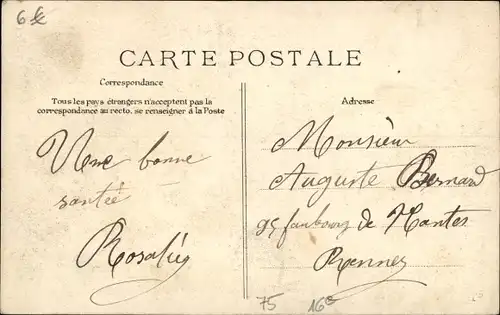 6 €
CARTE POSTALE
Correspondance
Tous les pays étrangers n'acceptent pas la
correspondance au recto, se renseigner à la Poste
Une bonne
santée
Rosalie
Adresse
Monsieur
Auguste Bernard
95 faubourg de Nantes
Rennes
75
16e